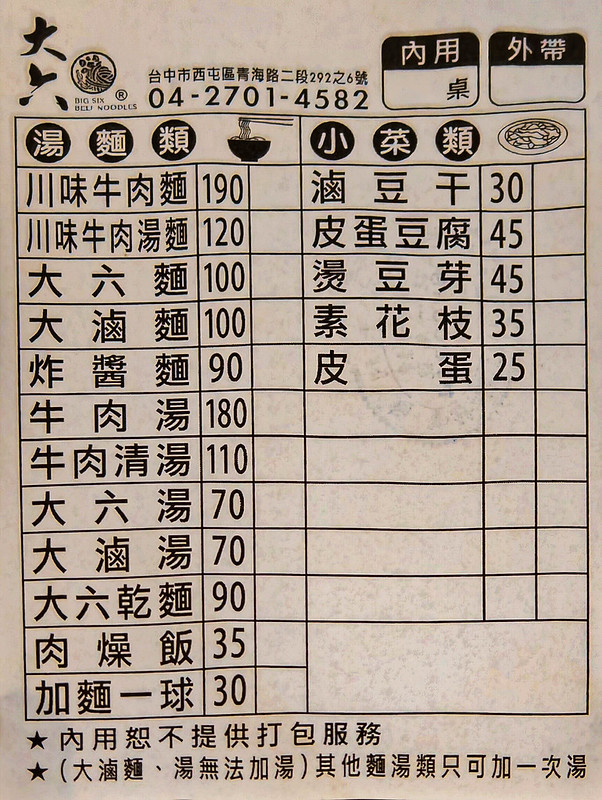 大六
BIG SIX
BELF NOODLES
®
台中市西屯區青海路二段292之6號
04-2701-4582
內用
桌
外帶
湯麵類
川味牛肉麵 190
川味牛肉湯麵 120
大六麵 100
大滷麵 100
炸醬麵 90
牛肉湯 180
牛肉清湯 110
大六湯 70
大滷湯 70
大六乾麵 90
肉燥飯 35
加麵一球 30
小菜類
滷豆干 30
皮蛋豆腐 45
燙豆芽 45
素花枝 35
皮蛋 25
★內用恕不提供打包服務
★(大滷麵、湯無法加湯)其他麵湯類只可加一次湯